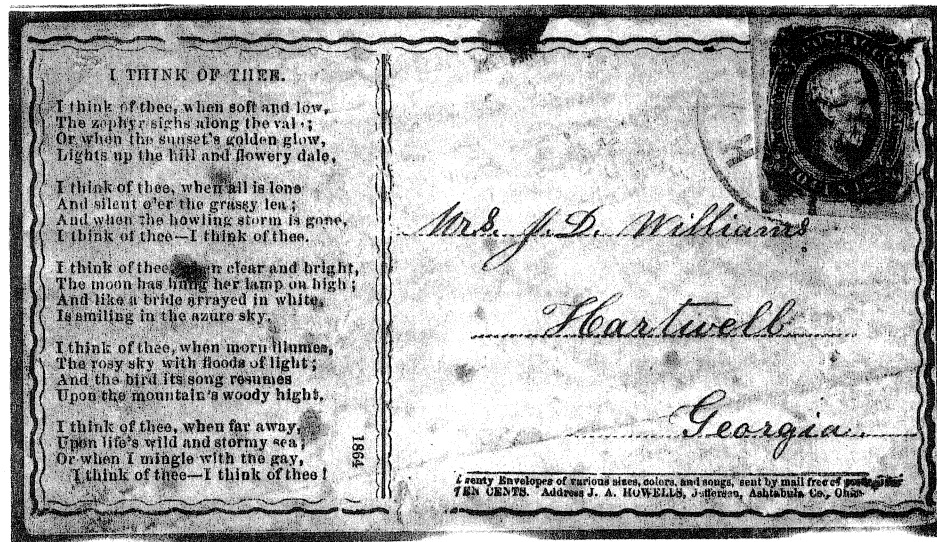 I THINK OF THEE.
I think of thee, when soft and low,
The zephyr sighs along the val ;
Or when the sunset's golden glow,
Lights up the hill and flowery dale,
I think of thee, when all is lone
And silent o'er the grassy lea ;
And when the howling storm is gone,
I think of thee—I think of thee.
I think of thee, clear and bright,
The moon has hung her lamp on high ;
And like a bride arrayed in white,
Is smiling in the azure sky,
I think of thee, when morn illumes,
The rosy sky with floods of light ;
And the bird its song resumes
Upon the mountain's woody hight,
I think of thee, when far away,
Upon life's wild and stormy sea ;
Or when I mingle with the gay,
I think of thee—I think of thee !
1864
POSTAGE
Mrs. J. D. Williams
Hartwell
Georgia
Envelopes of various sizes, colors, and songs, sent by mail free of
TEN CENTS. Address J. A. HOWELLS, Jefferson, Ashtabula Co., Ohio